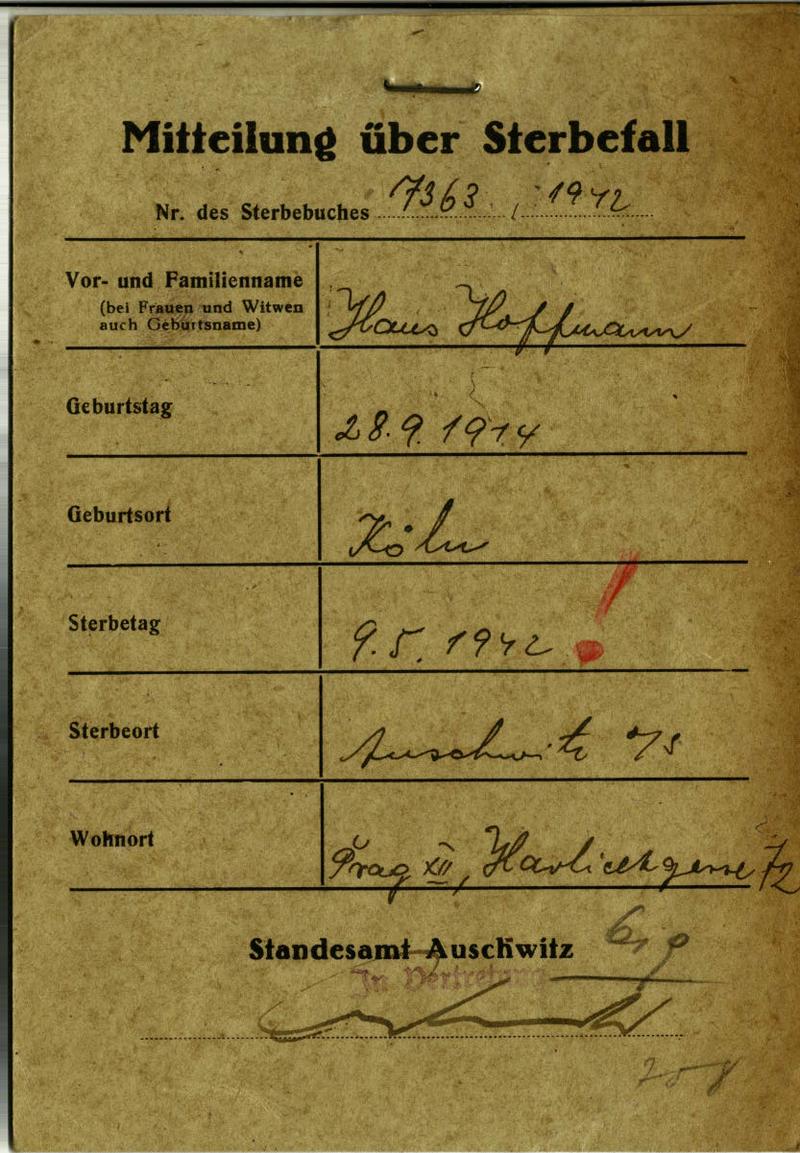 Mitteilung über Sterbefall
Nr. des Sterbebuches 7363 / 1942
Vor- und Familienname
(bei Frauen und Witwen
auch Geburtsname)
Hans Hoffmann
Geburtstag
28.9.1914
Geburtsort
Köln
Sterbetag
9.5.1942 !
Sterbeort
Auschwitz
Wohnort
Prag XII,
Standesamt Auschwitz
In Vertretung